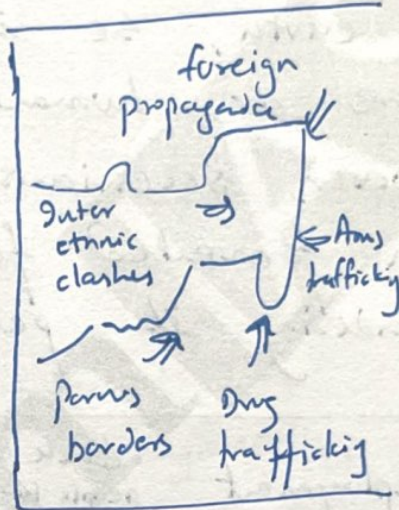 foreign
propaganda
Inter
ethnic
clashes
Arms
trafficking
Porous
borders
Drug
trafficking